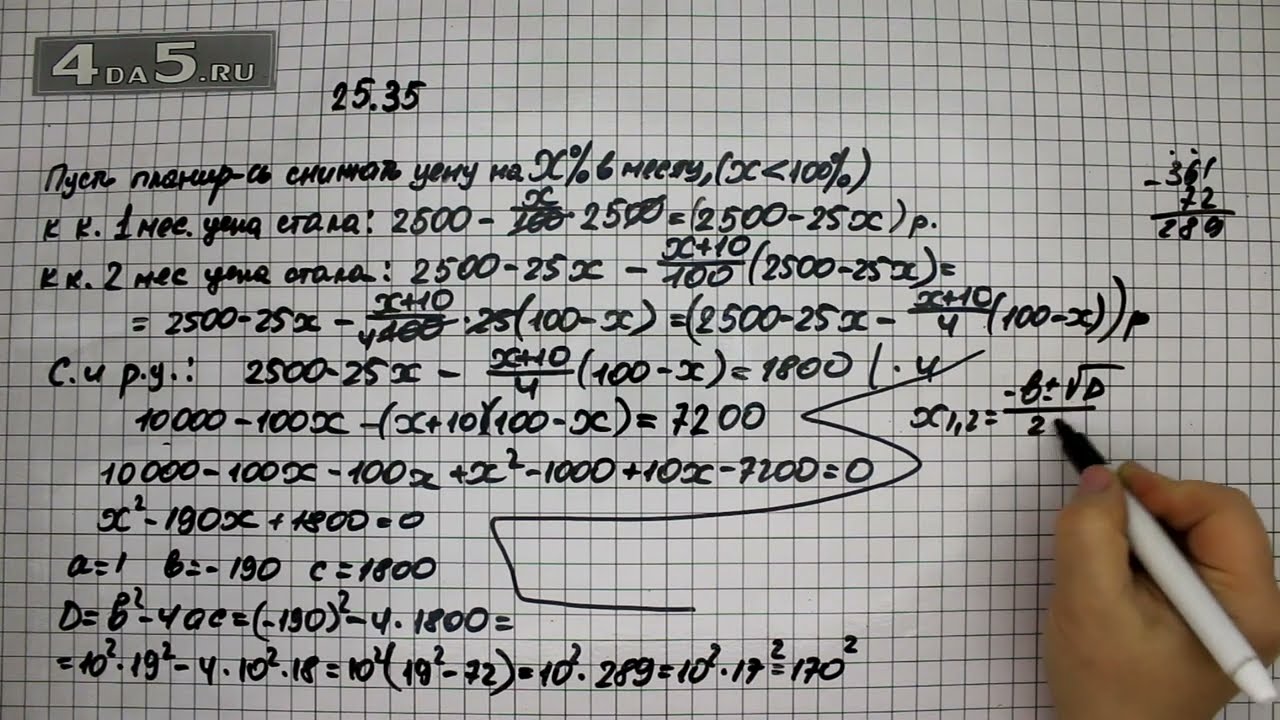 4DA5.RU
25.35
Пусть планир-сь снижать цену на X% в месяц, (x<100%)
к к. 1 мес. цена стала: 2500 - x/100 · 2500 = (2500-25x) р.
к к. 2 мес цена стала: 2500-25x - (x+10)/100 (2500-25x) =
= 2500-25x - (x+10)/4 100 · 25(100-x) = (2500-25x - (x+10)/4 (100-x)) р
С. и р. у.: 2500-25x - (x+10)/4 (100-x) = 1800 | · 4
10000-100x-(x+10)(100-x) = 7200
10000-100x-100x+x²-1000+10x-7200=0
x²-190x+1800=0
a=1 в=-190 c=1800
D=в²-4ac=(-190)²-4·1800=
=10²·19²-4·10²·18=10²(19²-72)=10²·289=10²·17²=170²
-361
72
289
x1,2 = (-в±√D)/2